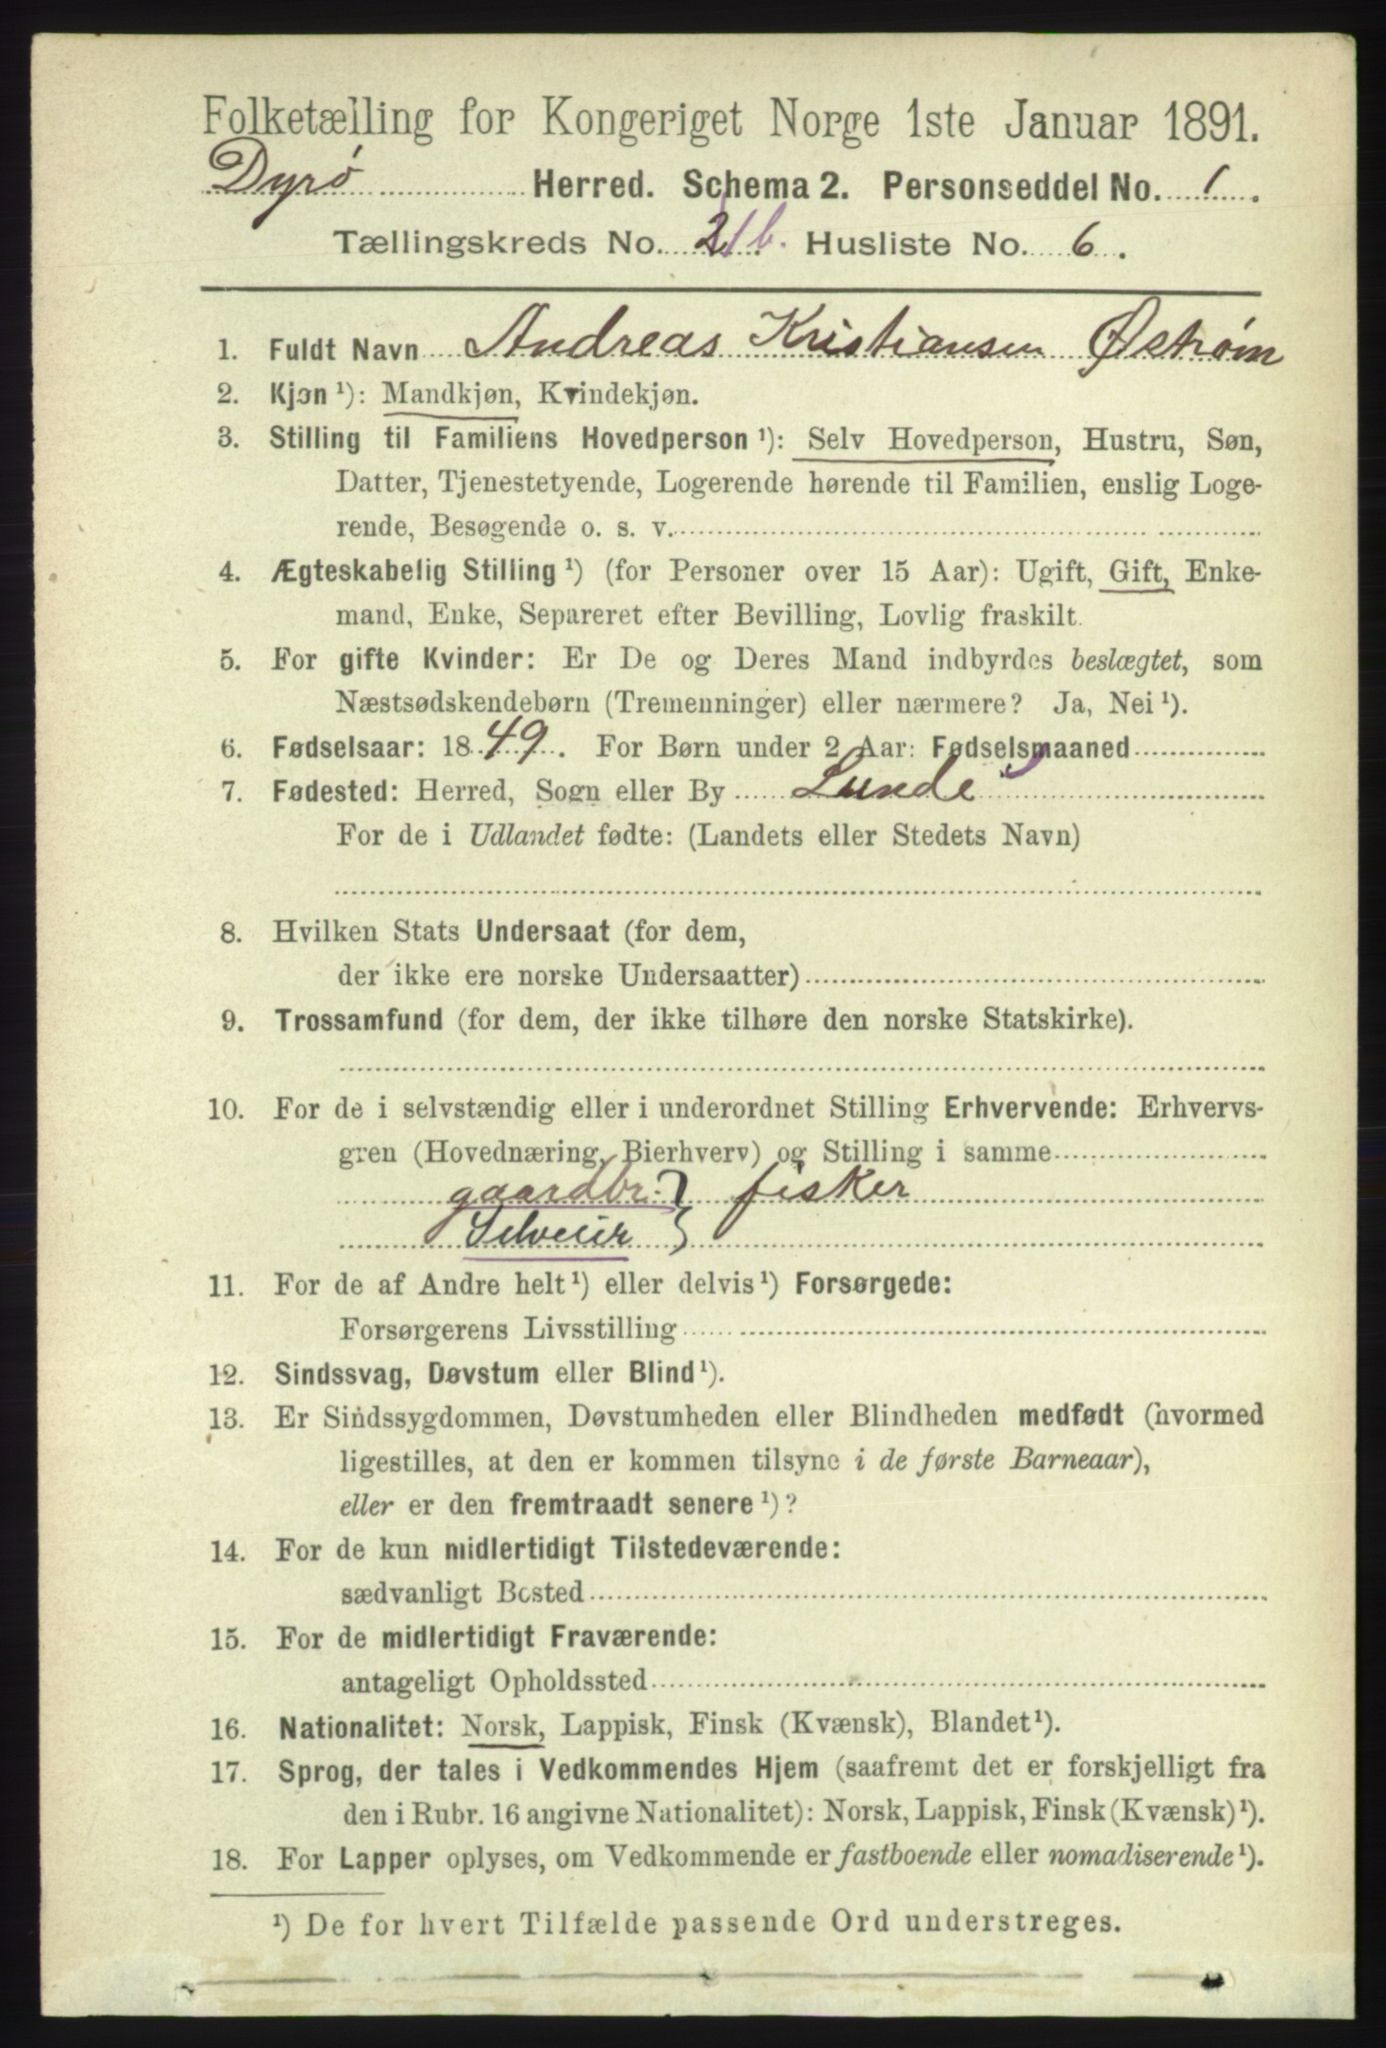 Folketælling for Kongeriget Norge 1ste Januar 1891.
Dyrø Herred. Schema 2. Personseddel No. 1.
Tællingskreds No. 2 1 b. Husliste No. 6.
1. Fuldt Navn Andreas Kristiansen Østrøm
2. Kjøn¹): Mandkjøn, Kvindekjøn.
3. Stilling til Familiens Hovedperson¹): Selv Hovedperson, Hustru, Søn,
Datter, Tjenestetyende, Logerende hørende til Familien, enslig Loge-
rende, Besøgende o. s. v.
4. Ægteskabelig Stilling¹) (for Personer over 15 Aar): Ugift, Gift, Enke-
mand, Enke, Separeret efter Bevilling, Lovlig fraskilt.
5. For gifte Kvinder: Er De og Deres Mand indbyrdes beslægtet, som
Næstsødskendebørn (Tremenninger) eller nærmere? Ja, Nei¹).
6. Fødselsaar: 1849. For Børn under 2 Aar: Fødselsmaaned
7. Fødested: Herred, Sogn eller By Lunde
For de i Udlandet fødte: (Landets eller Stedets Navn)
8. Hvilken Stats Undersaat (for dem,
der ikke ere norske Undersaatter)
9. Trossamfund (for dem, der ikke tilhøre den norske Statskirke).
10. For de i selvstændig eller i underordnet Stilling Erhvervende: Erhvervs-
gren (Hovednæring, Bierhverv) og Stilling i samme
gaardbr: } fisker
Selveier
11. For de af Andre helt¹) eller delvis¹) Forsørgede:
Forsørgerens Livsstilling
12. Sindssvag, Døvstum eller Blind¹).
13. Er Sindssygdommen, Døvstumheden eller Blindheden medfødt (hvormed
ligestilles, at den er kommen tilsyne i de første Barneaar),
eller er den fremtraadt senere¹)?
14. For de kun midlertidigt Tilstedeværende:
sædvanligt Bosted
15. For de midlertidigt Fraværende:
antageligt Opholdssted
16. Nationalitet: Norsk, Lappisk, Finsk (Kvænsk), Blandet¹).
17. Sprog, der tales i Vedkommendes Hjem (saafremt det er forskjelligt fra
den i Rubr. 16 angivne Nationalitet): Norsk, Lappisk, Finsk (Kvænsk)¹).
18. For Lapper oplyses, om Vedkommende er fastboende eller nomadiserende¹).
¹) De for hvert Tilfælde passende Ord understreges.